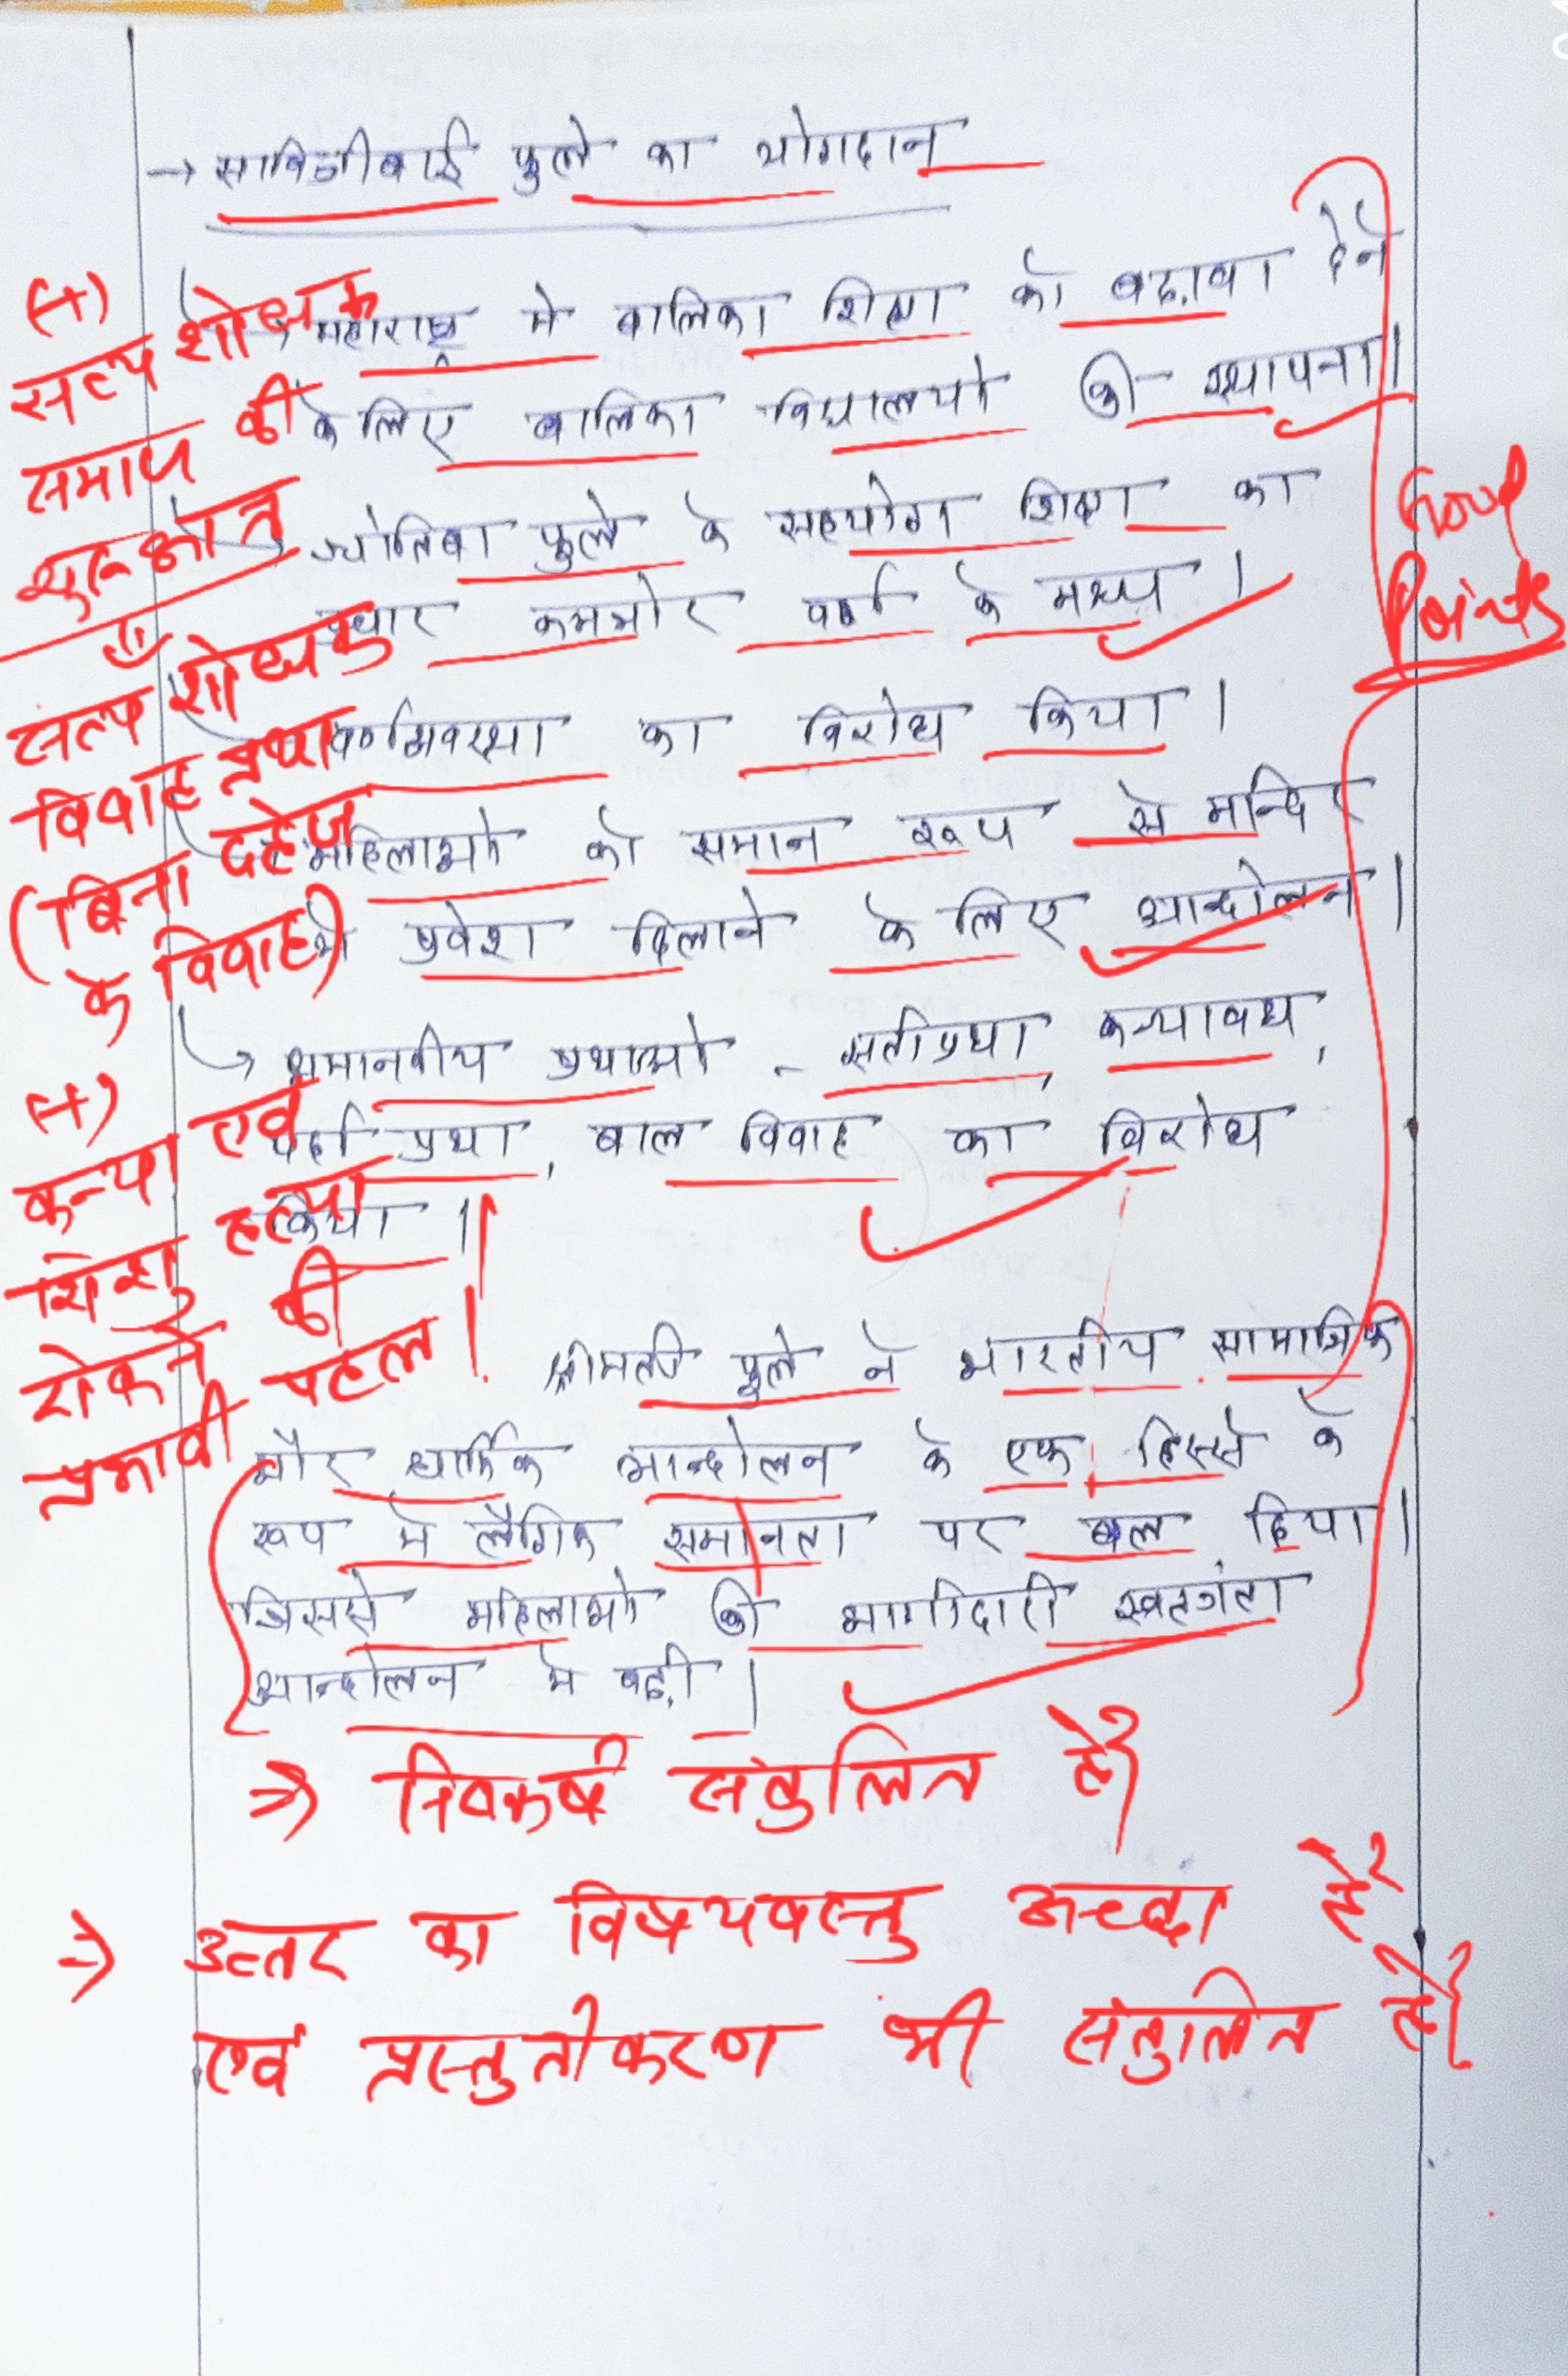 → सावित्रीबाई फुले का योगदान
→ महाराष्ट्र मे बालिका शिक्षा को बढ़ावा देने
के लिए बालिका विद्यालयो की स्थापना।
→ ज्योतिबा फुले के सहयोग शिक्षा का
कमजोर वर्ग के मध्य।
वर्णव्यवस्था का विरोध किया।
महिलाओ को समान रूप से मन्दिर
मे प्रवेश दिलाने के लिए आन्दोलन।
→ अमानवीय प्रथाओ - सतीप्रथा, कन्यावध,
पर्दा प्रथा, बाल विवाह का विरोध
किया।
श्रीमती फुले ने भारतीय सामाजिक
और धार्मिक आन्दोलन के एक हिस्से के
रूप मे लैंगिक समानता पर बल दिया।
जिससे महिलाओ की भागीदारी स्वतंत्रता
आन्दोलन मे बढ़ी।
(+)
सत्य शोधक
समाज की
शुरूआत
सत्य शोधक
विवाह प्रथा
(बिना दहेज
के विवाह)
(+)
कन्या एवं
शिशु हत्या
रोकने की
प्रभावी पहल!
Good
Points
⇒ निष्कर्ष संतुलित है।
⇒ उत्तर का विषयवस्तु अच्छा है
एवं प्रस्तुतीकरण भी संतुलित है।